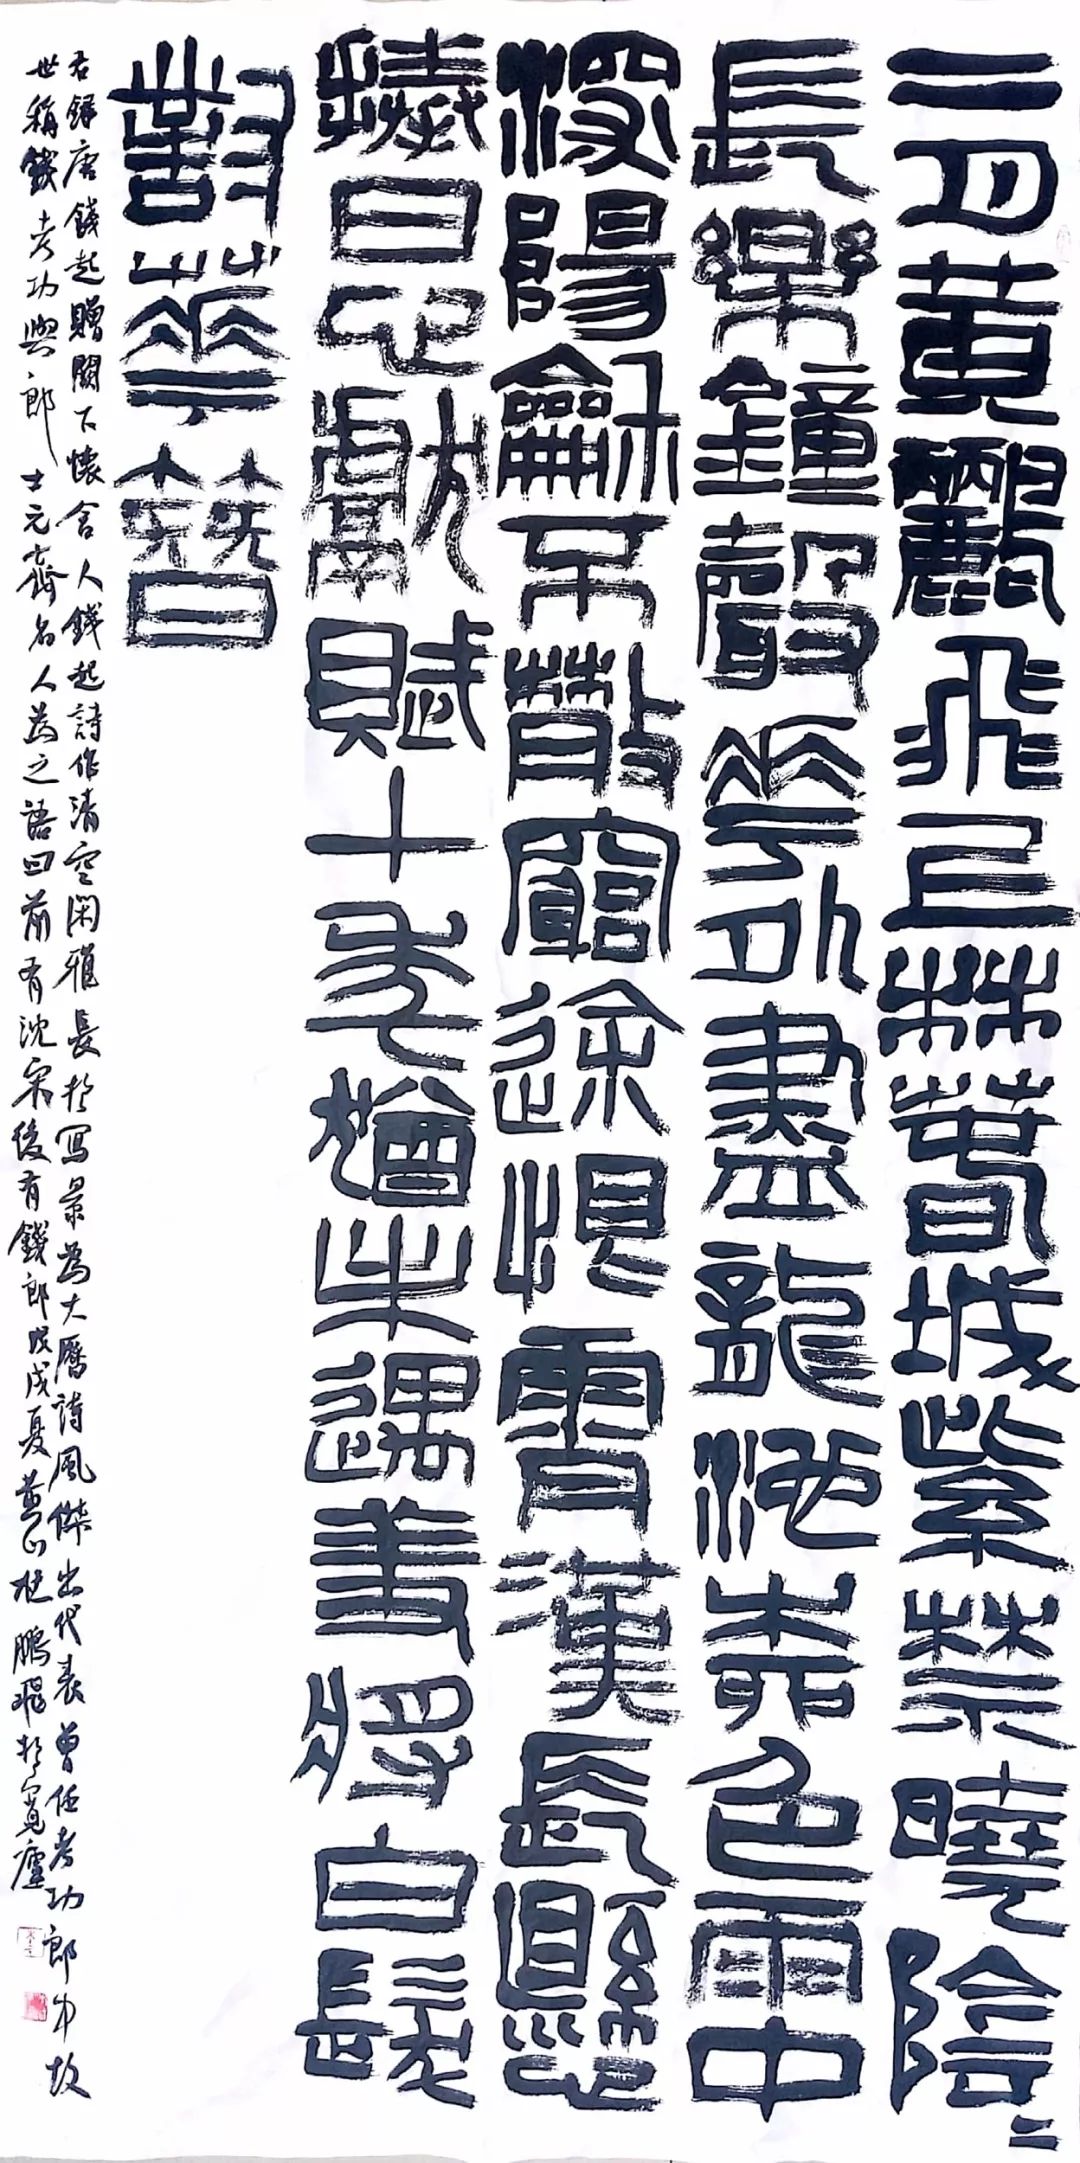 二月黃鸝飛上林春城紫禁曉陰二
長樂鐘聲花外盡龍池柳色雨中
深陽龢不散窮途恨霄漢長懸
捧日心獻賦十年猶未遇羞將白髮
對華簪
右錄唐錢起贈闕下懷舍人錢起詩作清空閑雅長於寫景為大曆詩風傑出代表曾任考功郎中故
世稱錢考功與郎士元齊名人為之語曰前有沈宋後有錢郎戊戌夏黃山杜鵬飛於寬廬